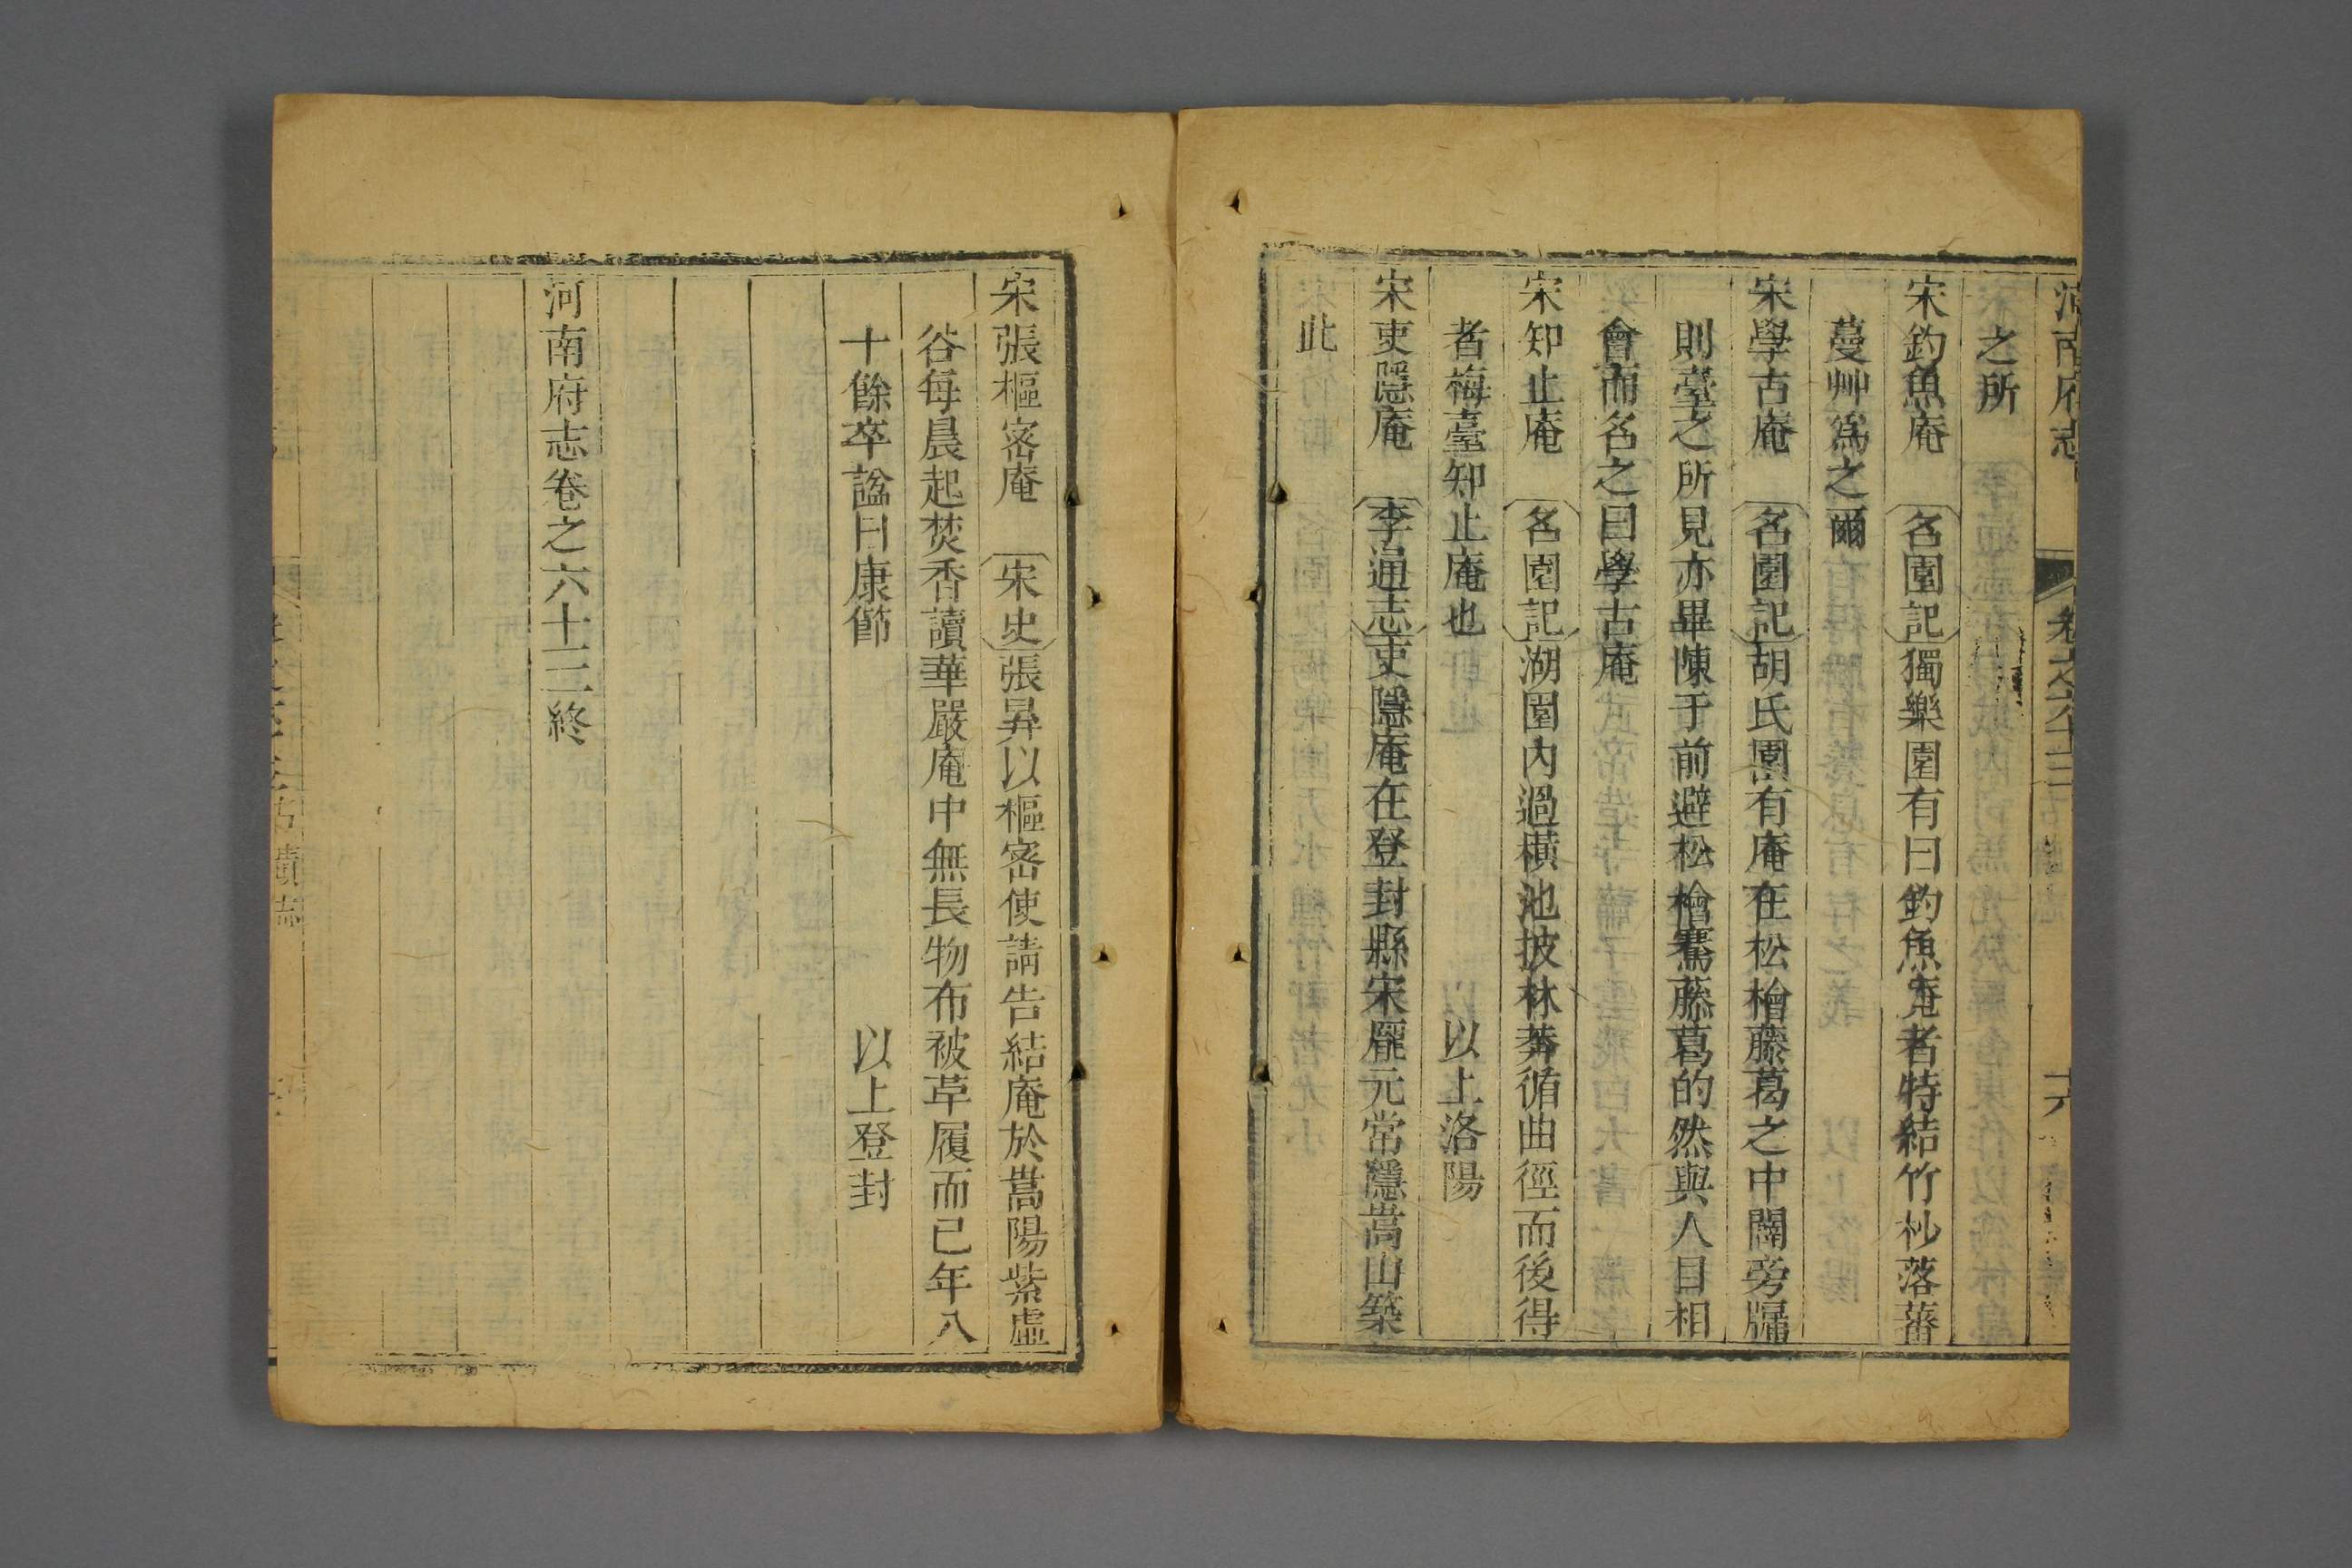 河南府志 卷之六十三 古蹟志 十六
之所
宋釣魚庵 名園記 獨樂園有曰釣魚庵者特結竹杪落蕃
蔓艸爲之爾
宋學古庵 名園記 胡氏園有庵在松檜藤葛之中闢旁牖
則臺之所見亦畢陳于前避松檜騫藤葛的然與人目相
會而名之曰學古庵
宋知止庵 名園記 湖園內過橫池披林莽循曲徑而後得
者梅臺知止庵也 以上洛陽
宋吏隱庵 李通志 吏隱庵在登封縣宋龎元常隱嵩山築
此
宋張樞密庵 宋史 張昇以樞密使請告結庵於嵩陽紫虛
谷每晨起焚香讀華嚴庵中無長物布被草履而已年八
十餘卒諡曰康節 以上登封
河南府志卷之六十三終
古蹟志